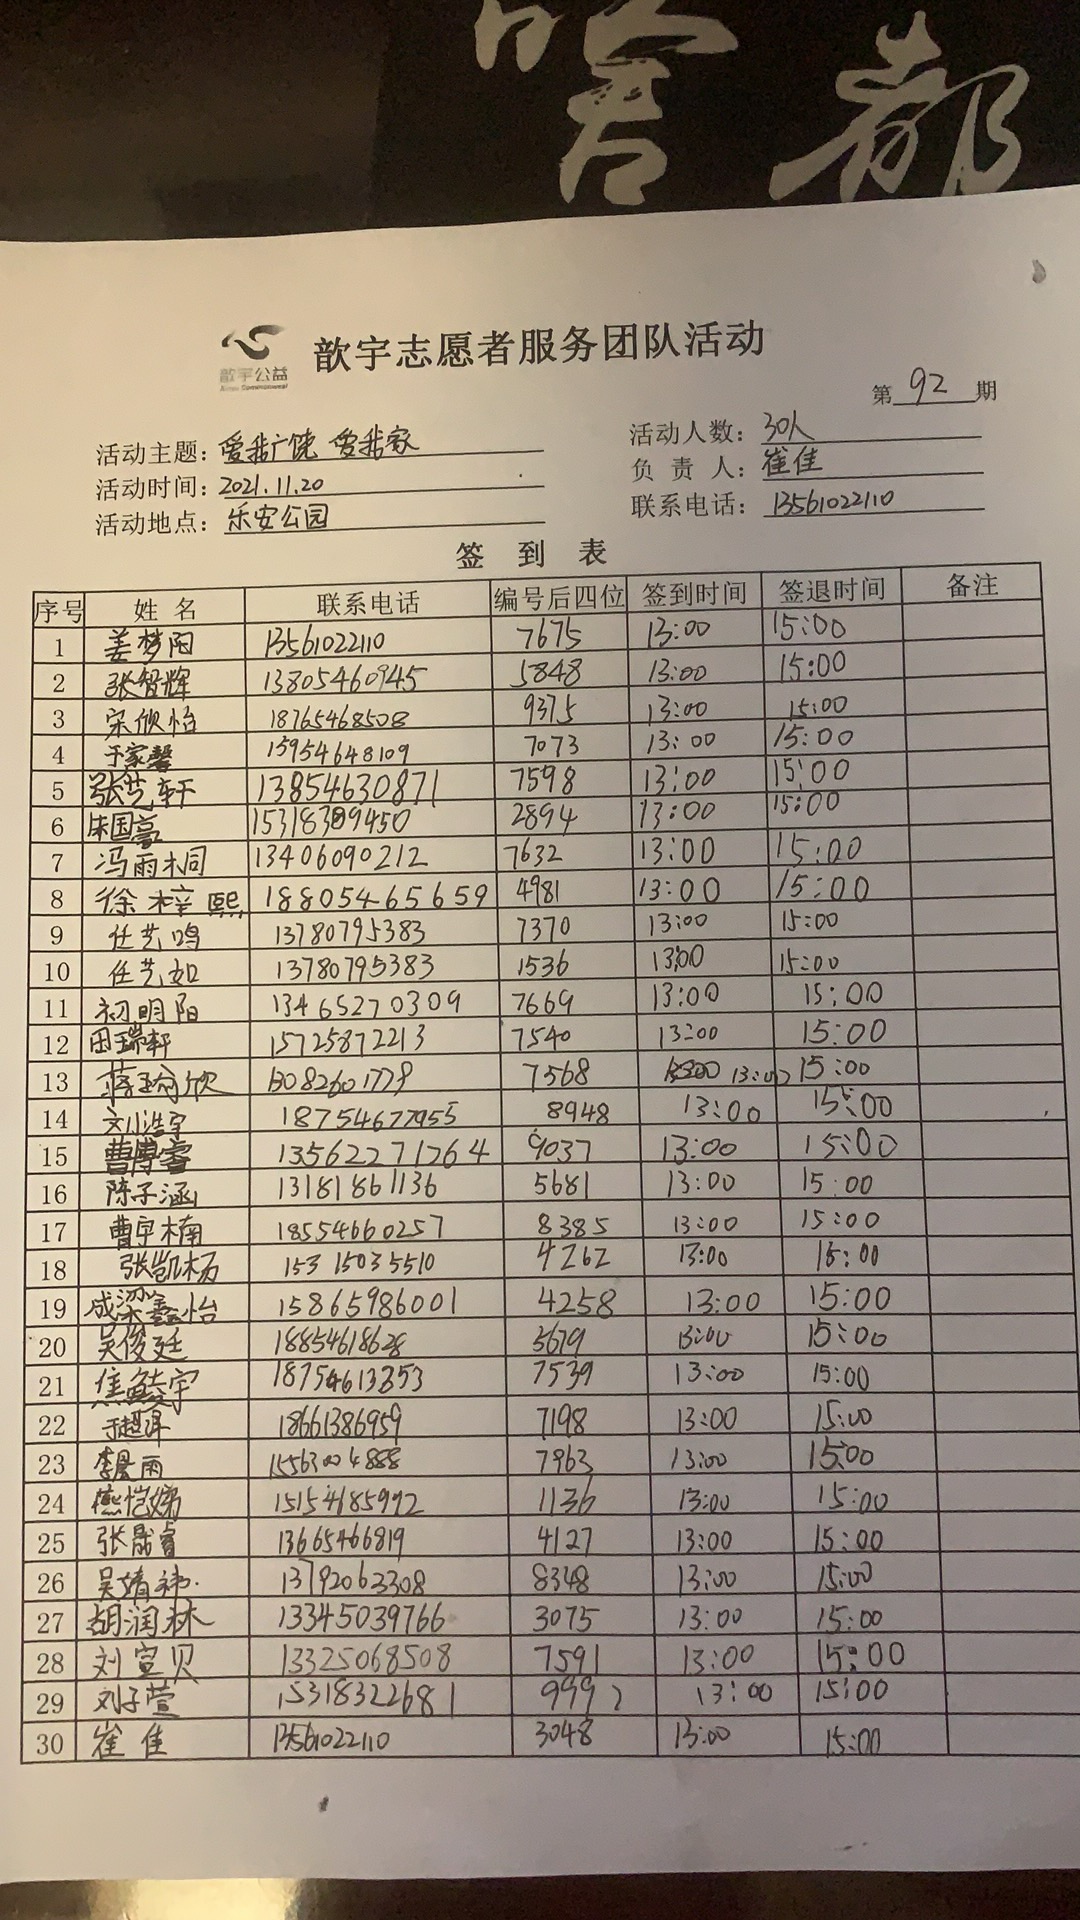 都
歆宇公益
歆宇志愿者服务团队活动
第 92 期
活动主题：爱我广饶 爱我家
活动人数：30人
活动时间：2021.11.20
负责人：崔佳
活动地点：乐安公园
联系电话：13561022110
签到表
序号 姓名 联系电话 编号后四位 签到时间 签退时间 备注
1 姜梦阳 13561022110 7675 13:00 15:00
2 张智辉 13805460945 5848 13:00 15:00
3 宋欣怡 18765468508 9375 13:00 15:00
4 于家馨 15954648109 7073 13:00 15:00
5 张艺轩 13854630871 7598 13:00 15:00
6 朱国豪 15318389450 2894 13:00 15:00
7 冯雨桐 13406090212 7632 13:00 15:00
8 徐梓熙 18805465659 4981 13:00 15:00
9 任艺鸣 13780795383 7370 13:00 15:00
10 任艺如 13780795383 1536 13:00 15:00
11 初明阳 13465270309 7669 13:00 15:00
12 田瑞轩 15725872213 7540 13:00 15:00
13 蒋瑜欣 13082601779 7568 13:00 15:00
14 刘浩宇 18754677955 8948 13:00 15:00
15 曹博睿 13562271264 9037 13:00 15:00
16 陈子涵 13181861136 5681 13:00 15:00
17 曹宇楠 18554660257 8385 13:00 15:00
18 张凯杨 15315035510 4262 13:00 15:00
19 成梁鑫怡 15865986001 4258 13:00 15:00
20 吴俊廷 18854618628 3679 13:00 15:00
21 焦鲮宇 18754613353 7539 13:00 15:00
22 18661386959 7198 13:00 15:00
23 李晨雨 15563004888 7963 13:00 15:00
24 燕恺娣 15154185992 1136 13:00 15:00
25 张晟睿 13665466819 4127 13:00 15:00
26 吴婧祎 13792063308 8348 13:00 15:00
27 胡润林 13345039766 3075 13:00 15:00
28 刘宣贝 13325068508 7591 13:00 15:00
29 刘子萱 15318322681 9992 13:00 15:00
30 崔佳 13561022110 3048 13:00 15:00